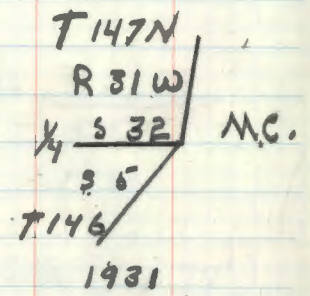 T 147N
R 31 W
1/4 S 32 M.C.
S 5
T 146
1931